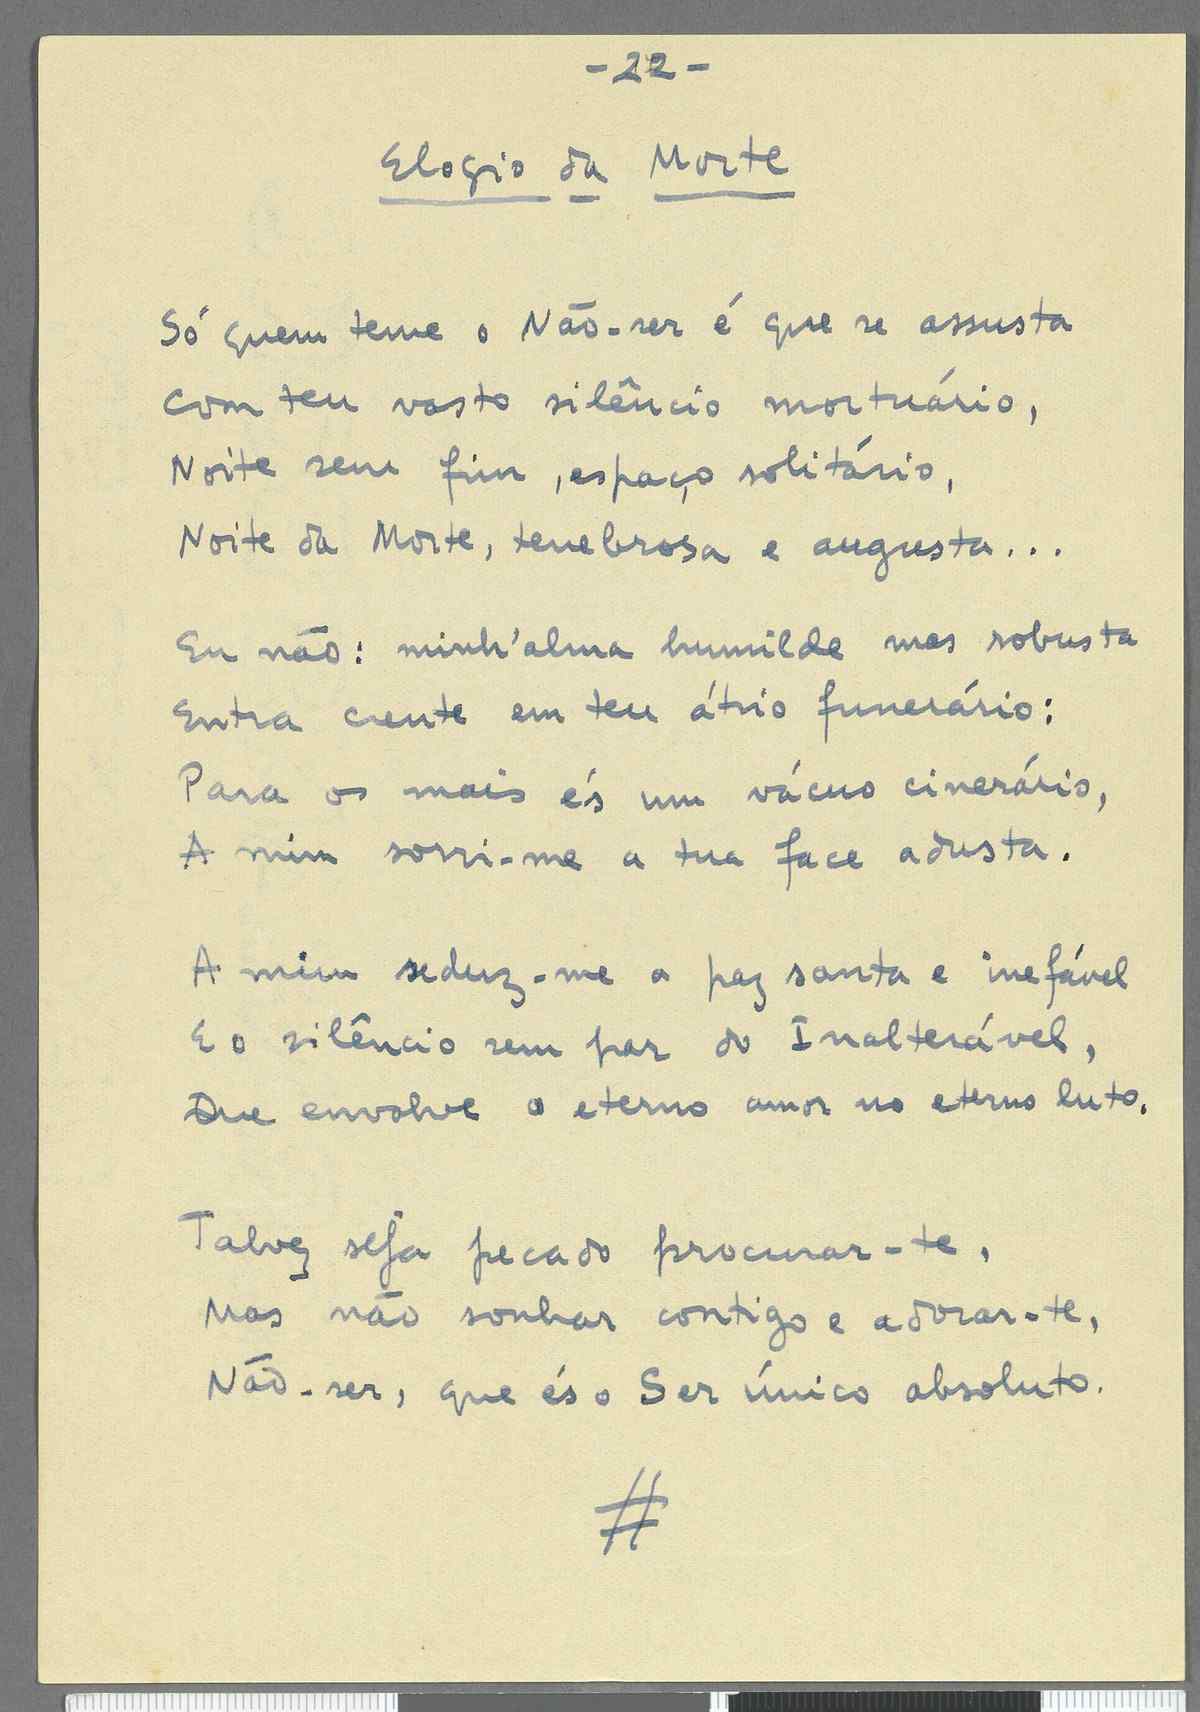 -22-
Elogio da Morte
Só quem teme o Não-ser é que se assusta
com teu vasto silêncio mortuário,
Noite sem fim, espaço solitário,
Noite da Morte, tenebrosa e augusta...
Eu não: minh'alma humilde mas robusta
Entra crente em teu átrio funerário:
Para os mais és um vácuo cinerário,
A mim sorri-me a tua face adusta.
A mim seduz-me a paz santa e inefável
E o silêncio sem par do Inalterável,
Que envolve o eterno amor no eterno luto.
Talvez seja pecado procurar-te,
Mas não sonhar contigo e adorar-te,
Não-ser, que és o Ser único absoluto.
#